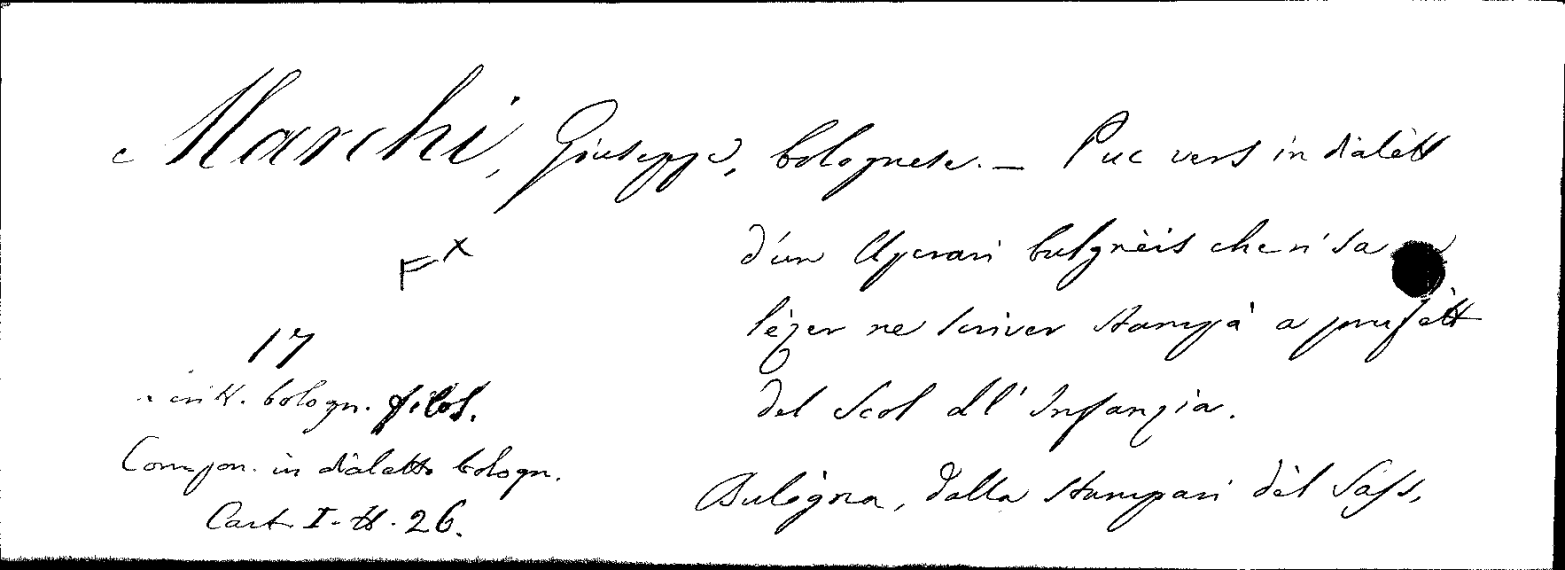 Marchi, Giuseppe, bolognese. — Puc vers in dialètt
d'un Uperari bulgnèis che n' sa
lèzer ne scriver stampà a prufètt
del Scol dl' Infanzia.
Bulògna, dalla Stampari dèl Sass,
F x
17
Scritt. bologn. filos.
Compon. in dialetto bologn.
Cart. I. H. 26.